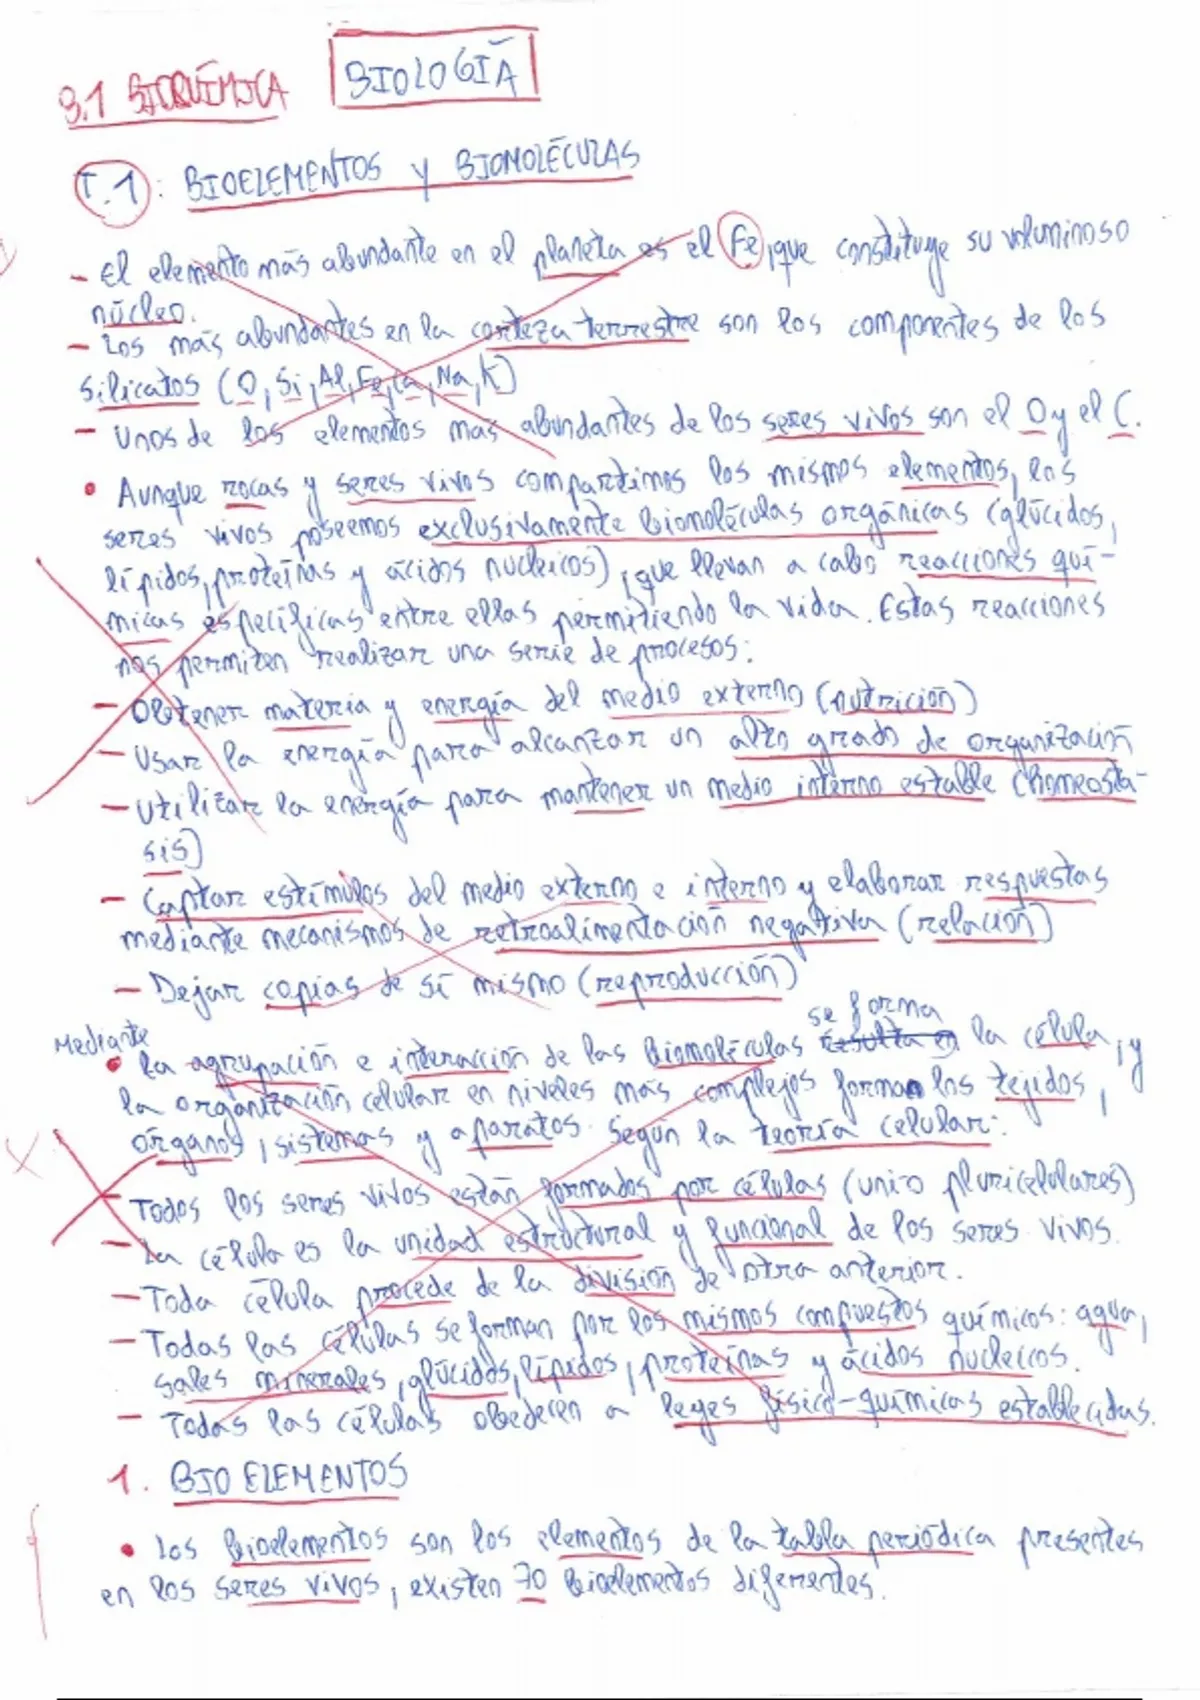 B.1 BIOQUÍMICA
BIOLOGÍA
T.1: BIOELEMENTOS y BIOMOLÉCULAS
- El elemento más abundante en el planeta es el Fe, que constituye su voluminoso
núcleo.
- Los más abundantes en la corteza terrestre son los componentes de los
silicatos (O, Si, Al, Fe, Ca, Na, K)
- Unos de los elementos más abundantes de los seres vivos son el O y el C.
• Aunque rocas y seres vivos compartimos los mismos elementos, los
seres vivos poseemos exclusivamente biomoléculas orgánicas (glúcidos,
lípidos, proteínas y ácidos nucleicos), que llevan a cabo reacciones quí-
micas específicas entre ellas permitiendo la vida. Estas reacciones
nos permiten realizar una serie de procesos:
- Obtener materia y energía del medio externo (nutrición)
- Usar la energía para alcanzar un alto grado de organización
- Utilizar la energía para mantener un medio interno estable (homeosta-
sis)
- Captar estímulos del medio externo e interno y elaborar respuestas
mediante mecanismos de retroalimentación negativa (relación)
- Dejar copias de sí mismo (reproducción)
Mediante
se forma
• la agrupación e interacción de las biomoléculas resulta en la célula, y
la organización celular en niveles más complejos forman los tejidos,
órganos, sistemas y aparatos. Según la teoría celular:
- Todos los seres vivos están formados por células (uni o pluricelulares)
- La célula es la unidad estructural y funcional de los seres vivos.
- Toda célula procede de la división de otra anterior.
- Todas las células se forman por los mismos compuestos químicos: agua,
sales minerales, glúcidos, lípidos, proteínas y ácidos nucleicos.
- Todas las células obedecen a leyes físico-químicas establecidas.
1. BIOELEMENTOS
• Los bioelementos son los elementos de la tabla periódica presentes
en los seres vivos, existen 70 bioelementos diferentes.